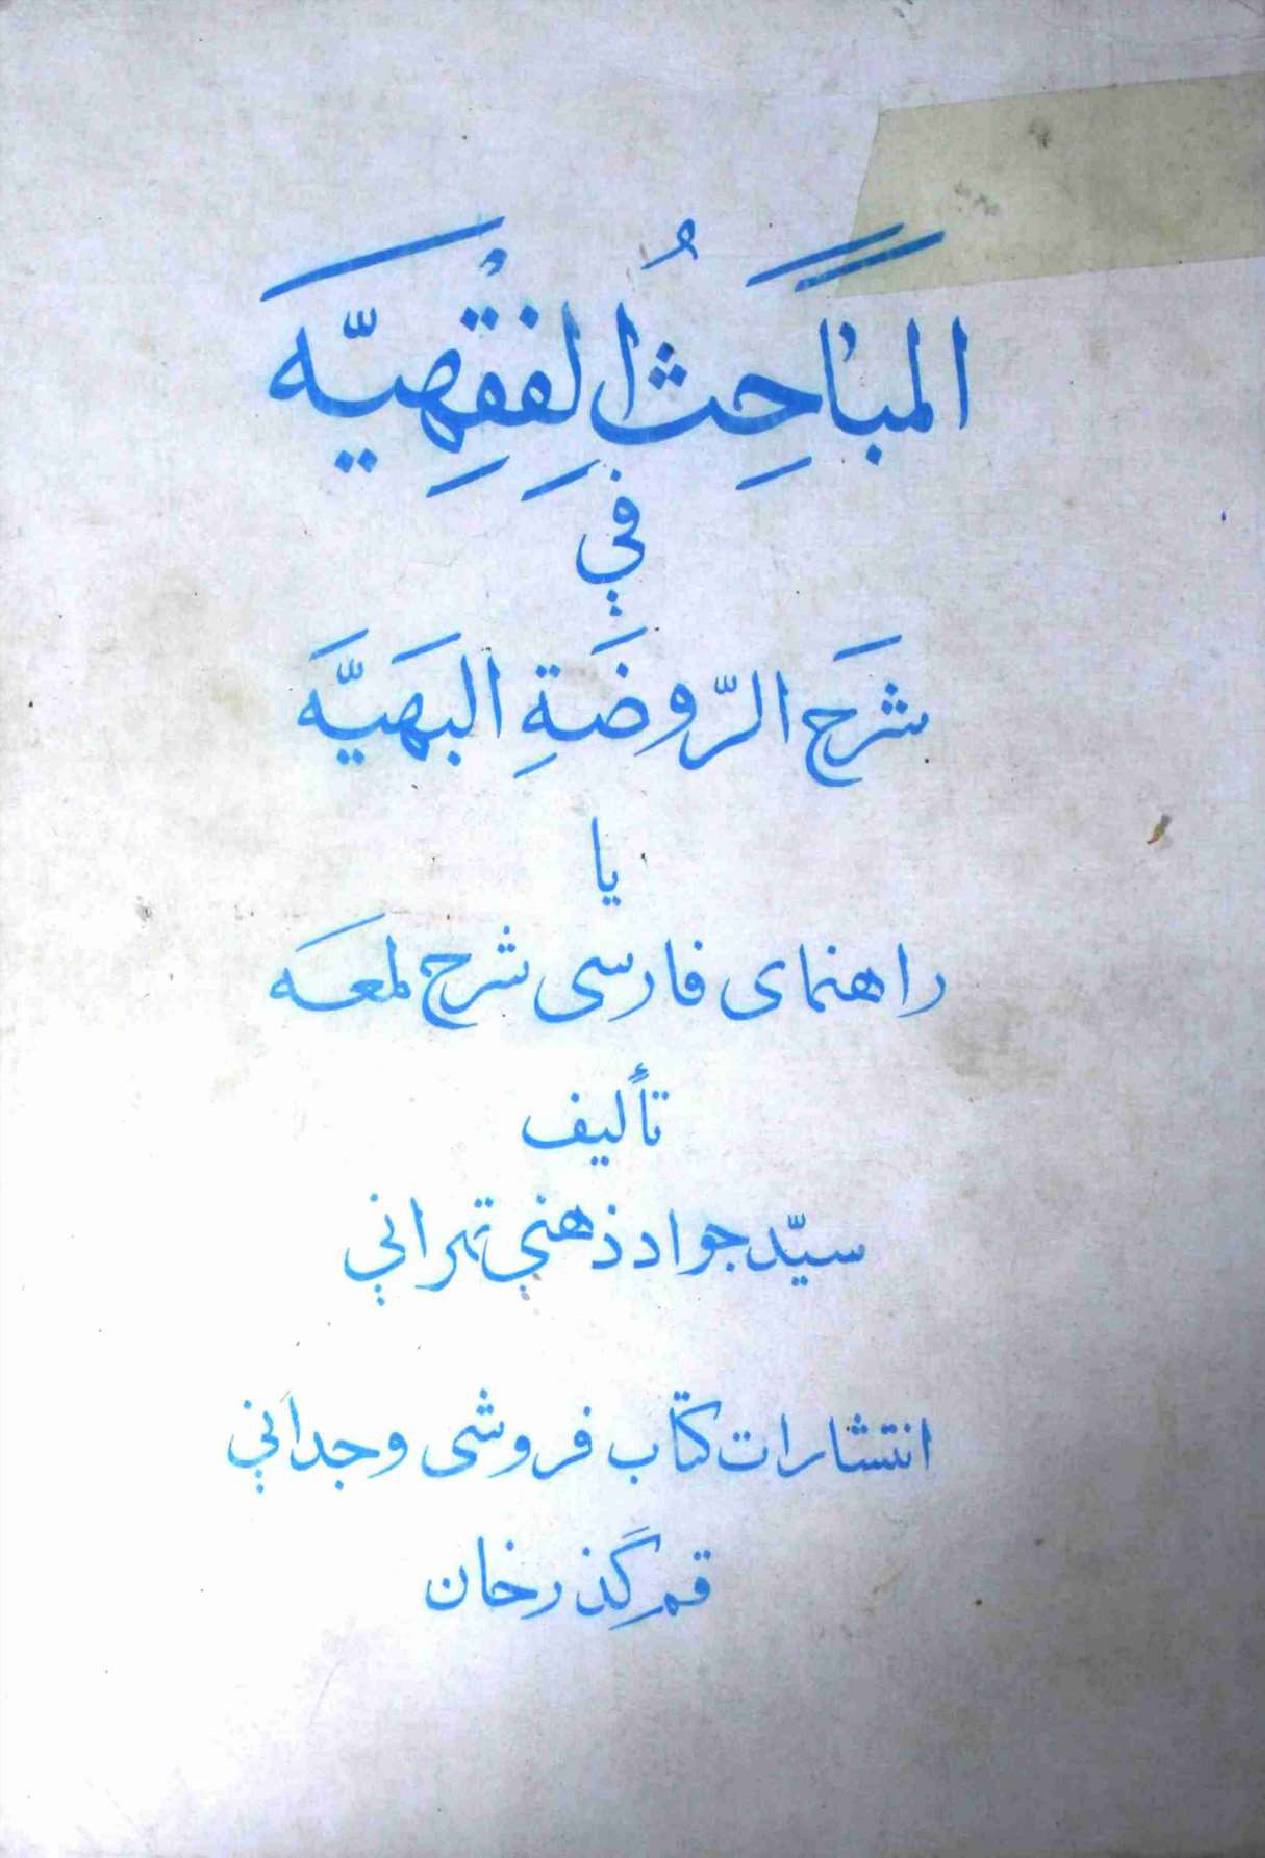 المبَاحِثُ الفِقْهِيَّه
في
شَرح الرّوضَةِ البَهيَّه
یا
راهنمای فارسی شرح لمعَه
تألیف
سیّد جواد ذهني تهراني
انتشارات کتاب فروشی وجداني
قم گذرخان